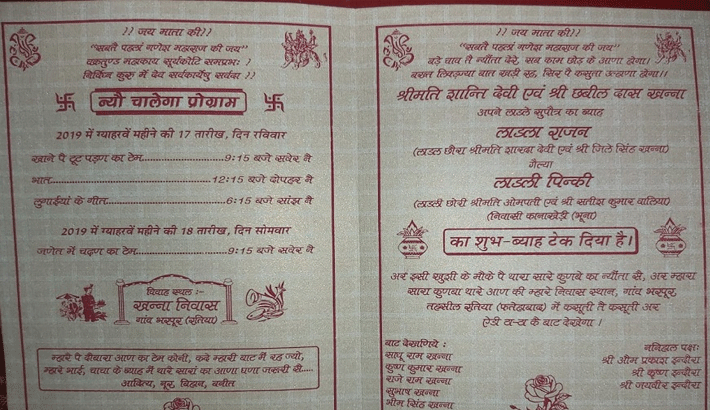 ?? जय माता की??
“सबतै पहल्यां गणेश महाराज की जय”
वक्रतुण्ड महाकाय सूर्यकोटि समप्रभः ?
निर्विघ्नं कुरू में देव सर्वकार्येषु सर्वदा ??
न्यौ चालेगा प्रोग्राम
2019 में ग्याहरवें महीने की 17 तारीख, दिन रविवार
खाने पै टूट पड़ण का टेम....................9:15 बजे सवेर नै
भात.....................................12:15 बजे दोपहर नै
लुगाईयां के गीत.............................6:15 बजे सांझ नै
2019 में ग्याहरवें महीने की 18 तारीख, दिन सोमवार
जणेत में चढ़ण का टेम...................9:15 बजे सवेर नै
विवाह स्थल :-
खन्ना निवास
गांव भरपूर (रतिया)
म्हारे पै दीबारा आण का टेम कोनी, कदे म्हारी बाट मैं रह ज्यो,
म्हारे भाई, चाचा के ब्याह मैं थारे सारां का आणा घणा जरूरी सै.....
आदित्य, नूर, विहान, वनीत
?? जय माता की??
“सबतै पहल्यां गणेश महाराज की जय”
बड़े चाव तै न्यौंता देरे, सब काम छोड़ के आणा होगा।
बखत लिकड़ज्या बात खड़ी रहू, सिर पै कसुता उल्हाणा होगा।।
श्रीमति शान्ति देवी एवं श्री छबील दास खन्ना
अपने लाडले सुपौत्र का ब्याह
लाडला राजन
(लाडला छौरा श्रीमति शारदा देवी एवं श्री जिले सिंह खन्ना)
गैल्या
लाडली पिन्की
(लाडली छोरी श्रीमति ओमपती एवं श्री सतीश कुमार वालिया)
(निवासी कानाखेड़ी (भूना)
का शुभ-ब्याह टेक दिया है।
अर इसी खुशी के मौके पै थारा सारे कुणबे का न्यौंता सै, अर म्हारा
सारा कुणबा थारे आण की म्हारे निवास स्थान, गांव भरपूर,
तहसील रतिया (फतेहाबाद) में कसूती तै कसूती अर
ऐडी ठा-ठा कै बाट देखेगा ।
बाट देखणिये :
साधू राम खन्ना
कृष्ण कुमार खन्ना
राजे राम खन्ना
सुभाष खन्ना
भीम सिंह खन्ना
ननिहाल पक्षः
श्री ओम प्रकाश इन्दौरा
श्री कृष्ण इन्दौरा
श्री जयवीर इन्दौरा